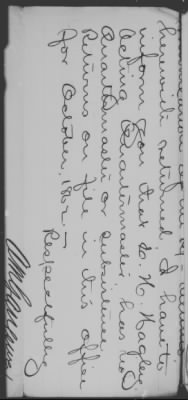 herewith returned. I have to
inform you that
Acting Quartermaster has no
Quartermaster or subsistence
Returns on file in this office
for October, 1862.—
Respectfully